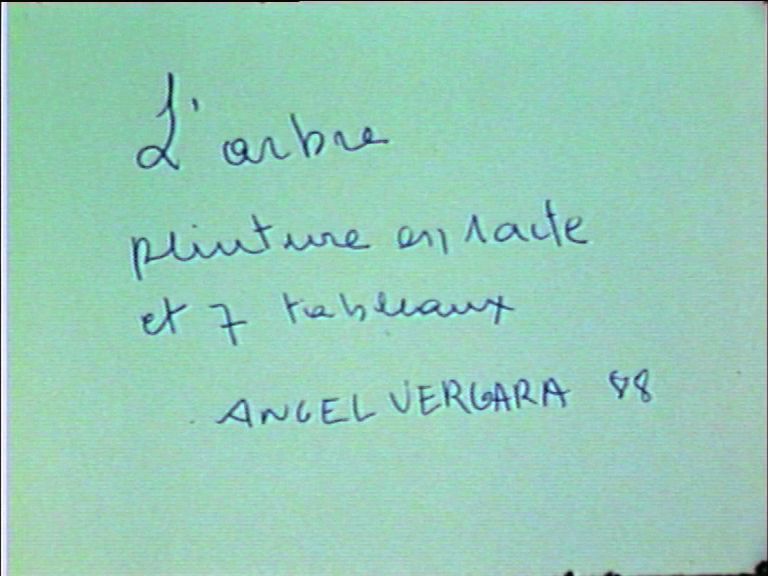 L'arbre
peinture en 1 acte
et 7 tableaux
ANGEL VERGARA 88